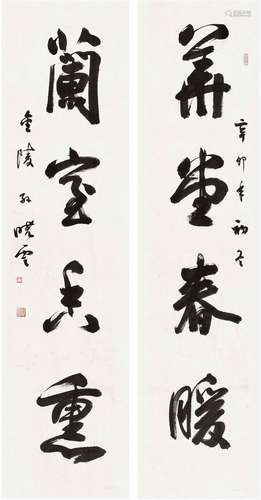 華堂春暖
辛卯年初冬
蘭室香熏
金陵孫曉雲